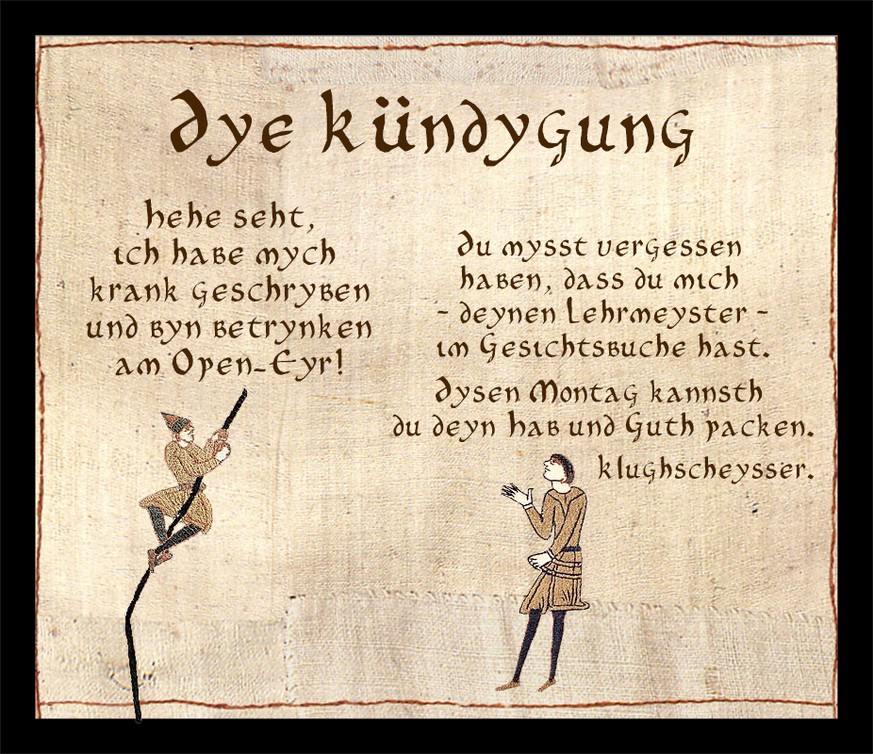 Dye kündygung
hehe seht,
ich habe mych
krank geschryben
und byn betrynken
am Open-Eyr!
Du mysst vergessen
haben, dass du mich
- deynen Lehrmeyster -
im Gesichtsbuche hast.
Dysen Montag kannsth
du deyn Hab und Guth packen.
klughscheysser.